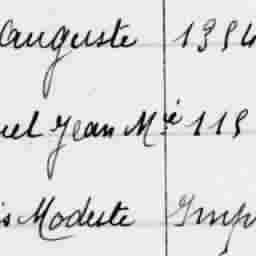 Auguste 1394
uel Jean Mié 115
is Modeste Imp